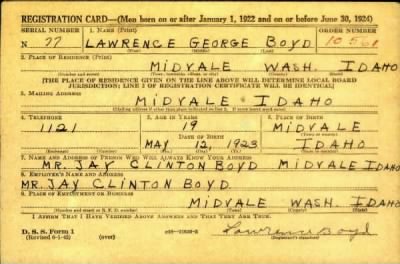 REGISTRATION CARD—(Men born on or after January 1, 1922 and on or before June 30, 1924)
SERIAL NUMBER 1. NAME (Print) ORDER NUMBER
N 77 LAWRENCE GEORGE BOYD
(First) (Middle) (Last)
2. PLACE OF RESIDENCE (Print)
MIDVALE WASH. IDAHO
(Number and street) (Town, township, village, or city) (County) (State)
[THE PLACE OF RESIDENCE GIVEN ON THE LINE ABOVE WILL DETERMINE LOCAL BOARD
JURISDICTION; LINE 2 OF REGISTRATION CERTIFICATE WILL BE IDENTICAL]
3. MAILING ADDRESS
MIDVALE IDAHO
4. TELEPHONE 5. AGE IN YEARS 6. PLACE OF BIRTH
1121 19 MIDVALE
DATE OF BIRTH
MAY 12, 1923 IDAHO
7. NAME AND ADDRESS OF PERSON WHO WILL ALWAYS KNOW YOUR ADDRESS
MR. JAY CLINTON BOYD MIDVALE IDAHO
8. EMPLOYER'S NAME AND ADDRESS
MR. JAY CLINTON BOYD.
9. PLACE OF EMPLOYMENT OR BUSINESS
MIDVALE WASH. IDAHO
(Number and street or R. F. D. number) (Town) (County) (State)
I AFFIRM THAT I HAVE VERIFIED ABOVE ANSWERS AND THAT THEY ARE TRUE.
D. S. S. Form 1
(Revised 6-1-42) (over) Lawrence Boyd
(Registrant's signature)